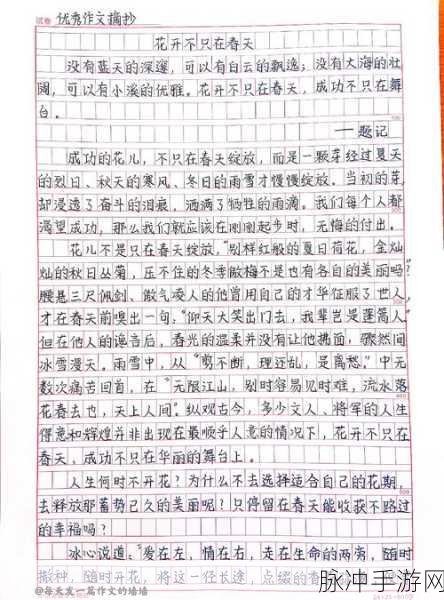 试卷 优秀作文摘抄
花开不只在春天
没有蓝天的深邃，可以有白云的飘逸；没有大海的壮
阔，可以有小溪的优雅。花开不只在春天，成功不只在舞
台。
——题记
成功的花儿，不只在春天绽放，而是一颗芽经过夏天
的烈日、秋天的寒风、冬日的雨雪才慢慢绽放。当初的芽，
却浸透了奋斗的泪痕，洒满了牺牲的雨滴。我们每个人都
渴望成功，那么我们就应该在刚刚起步时，无悔的付出。
花儿不是只在春天绽放，“别样红般的夏日荷花，金灿
灿的秋日丛菊，压不住的冬季傲梅不是也有各自的美丽吗？
腰悬三尺佩剑、傲气凌人的他曾用自己的才华征服了世人，
才在春天前嗅出一句，“仰天大笑出门去，我辈岂是蓬蒿人”
但在他人的谗言后，春光的温柔并没有让他携面，骤然间
冰雪漫天。雨雪中，从“剪不断，理还乱，是离愁。”中无
数次痛苦回首，在“无限江山，别时容易见时难，流水落
花春去也，天上人间”。纵观古今，多少文人、将军的人生
得意和辉煌并非出现在最顺乎人意的情况下，花开不只在
春天、成功不只在华丽的舞台上。
人生何时不开花？为什么不去选择适合自己的花期，
去释放那蓄势已久的美丽呢？只停留在春天能收获不路过
的幸福吗？
冰心说道，“爱在左，情在右，走在生命的两旁，随时
撒种，随时开花，将这一径长途，点缀的香
@每天发一篇作文的墙墙
脉冲手游网